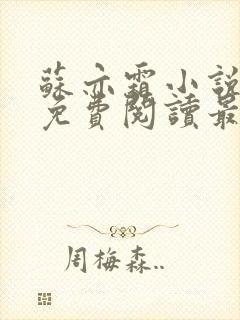 蘇亦霜小說
免費閱讀最
周梅森..